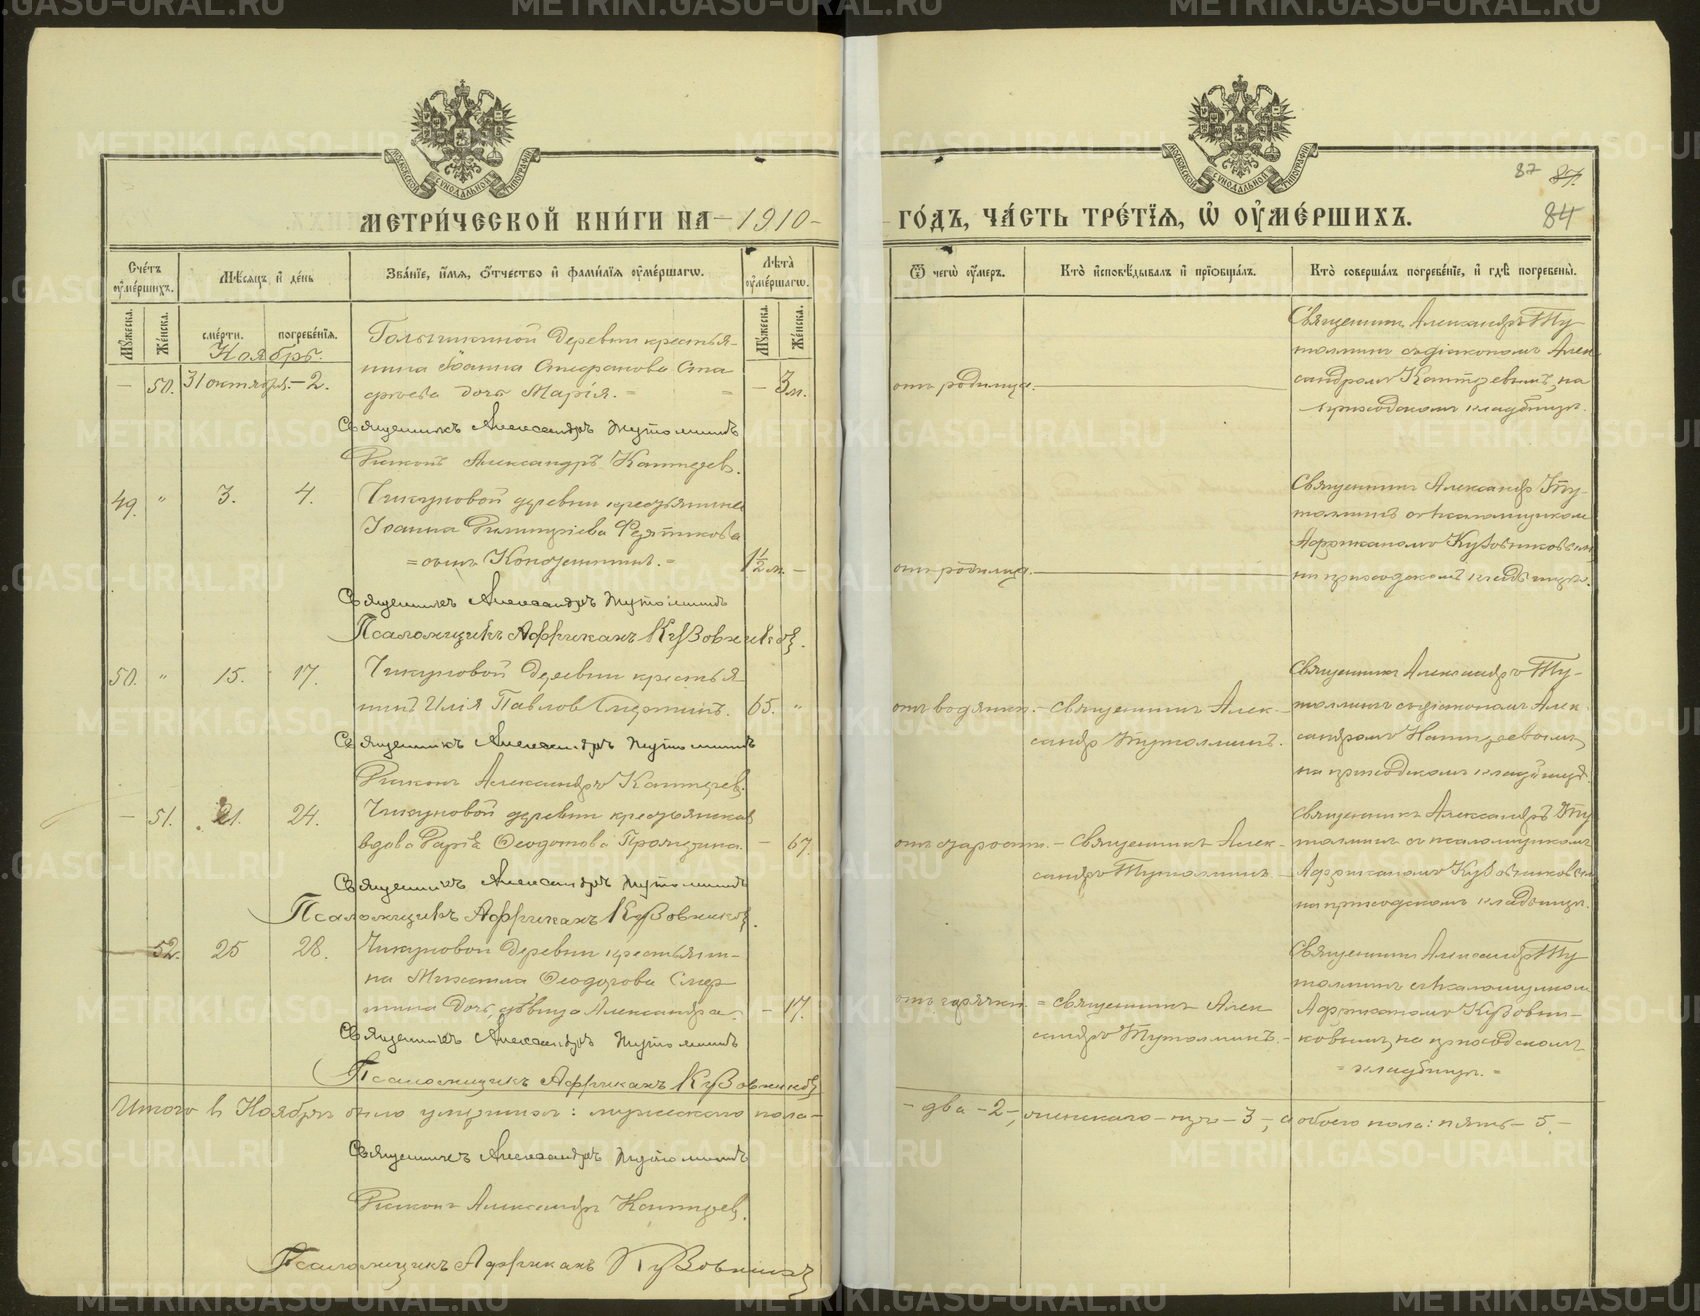 МЕТРИ́ЧЕСКОЙ КНИ́ГИ НА -1910-
ГО́ДЪ, ЧА́СТЬ ТРЕ́ТЇѦ, Ѽ ОУМЕ́РШИХЪ.
87 84
Сче́тъ оуме́ршихъ.
Мѣсяцъ и҆ де́нь
Зва́нїе, и҆́мѧ, ѻ҆́тчество и҆ фами́лїѧ оуме́ршагѡ.
Лѣ́та оуме́ршагѡ.
Ѿ чегѡ̀ оу́меръ.
Кто̀ и҆сповѣ́дывалъ и҆ прїѡбща́лъ.
Кто̀ соверша́лъ погребе́нїе, и҆ гдѣ̀ погребены̀.
Мꙋжеска.
Же́нска.
сме́рти.
погребе́нїѧ.
Мꙋжеска.
Же́нска.
Ноябрь.
— 50. 31 октября. — 2.
деревни крестья-
нина Іоанна Стефанова
дочь Марія.
— 3 м.
отъ родимца.
Священникъ Александръ Ту-
толминъ съ діакономъ Алек-
сандромъ на
приходскомъ кладбищѣ.
Священникъ Александръ Тутолминъ
Діаконъ Александръ
49. " 3. 4.
Чикуновой деревни крестьянина
Іоанна Димитріева
= сынъ Константинъ. =
1½ м. —
отъ родимца.
Священникъ Александръ Ту-
толминъ съ псаломщикомъ
Африканомъ Кузовниковымъ
на приходскомъ кладбищѣ.
Священникъ Александръ Тутолминъ
Псаломщикъ Африканъ Кузовниковъ.
50. " 15. 17.
Чикуновой деревни крестья-
нинъ Илія Павловъ Смертинъ.
65. "
отъ водянки. — Священникъ Алек-
сандръ Тутолминъ.
Священникъ Александръ Ту-
толминъ съ діакономъ Алек-
сандромъ
на приходскомъ кладбищѣ.
Священникъ Александръ Тутолминъ
Діаконъ Александръ
— 51. 21. 24.
Чикуновой деревни крестьянская
вдова Дарія Ѳеодотова
— 67.
отъ старости. — Священникъ Алек-
сандръ Тутолминъ.
Священникъ Александръ Ту-
толминъ съ псаломщикомъ
Африканомъ Кузовниковымъ
на приходскомъ кладбищѣ.
Священникъ Александръ Тутолминъ
Псаломщикъ Африканъ Кузовниковъ.
— 52. 25 28.
Чикуновой деревни крестьяни-
на Михаила Ѳеодорова Смер-
тина дочь, дѣвица Александра.
— 17.
отъ горячки. = Священникъ Алек-
сандръ Тутолминъ. —
Священникъ Александръ Ту-
толминъ съ псаломщикомъ
Африканомъ Кузовни-
ковымъ, на приходскомъ
= кладбищѣ. =
Священникъ Александръ Тутолминъ
Псаломщикъ Африканъ Кузовниковъ
Итого въ Ноябрѣ было умершихъ: мужескаго пола —
— два — 2 —, женскаго — три — 3 —, а обоего пола: пять — 5. —
Священникъ Александръ Тутолминъ
Діаконъ Александръ
Псаломщикъ Африканъ Кузовниковъ
METRIKI.GASO-URAL.RU